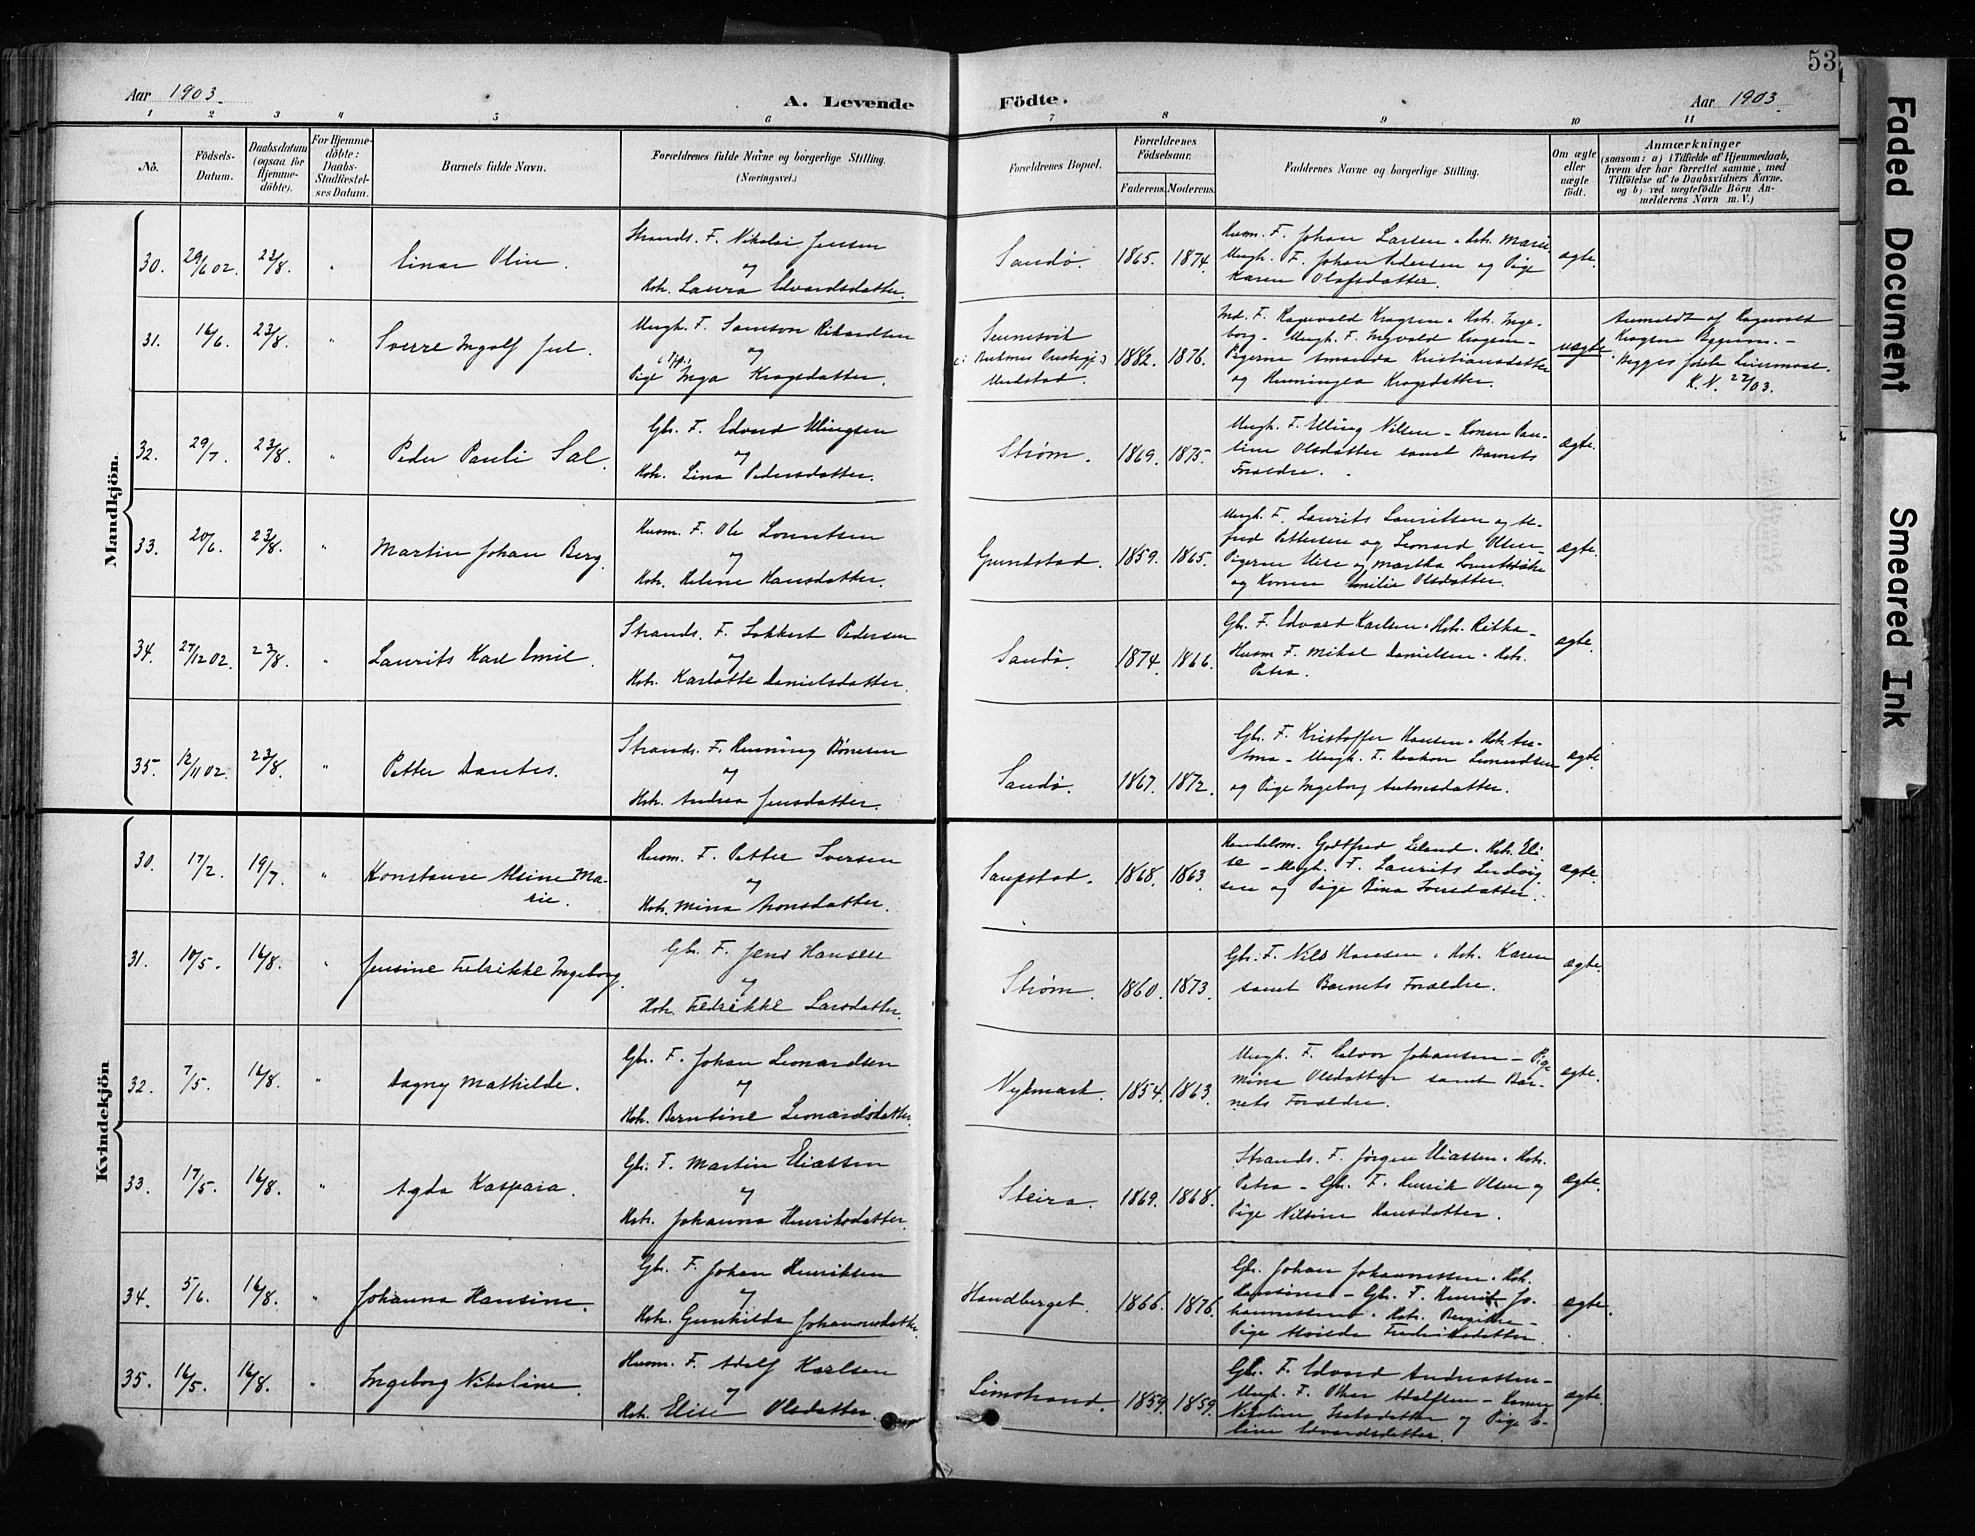 53
Aar 1903.
A. Levende Födte.
Aar 1903.
1 2 3 4 5 6 7 8 9 10 11
No.
Födsels-
Datum.
Daabsdatum
(ogsaa for
Hjemme-
döbte).
For Hjemme-
döbte:
Daabs-
Stadfæstel-
ses Datum.
Barnets fulde Navn.
Forældrenes fulde Navne og borgerlige Stilling.
(Næringsvei.)
Forældrenes Bopæl.
Forældrenes
Födselsaar.
Faderens. Moderens.
Faddernes Navne og borgerlige Stilling.
Om ægte
eller
uægte
födt.
Anmærkninger
(saasom: a) i Tilfælde af Hjemmedaab,
hvem der har forrettet samme, med
Tilföielse af to Daabsvidners Navne,
og b) ved uægtefödte Börn An-
melderens Navn m. V.)
Mandkjön.
30. 29/6 02. 23/8. " Einar Olin.
Strands. F. Nikolai Jensen
og
Hstr. Laura Edvardsdatter.
Sandø. 1865. 1874.
Husm. F. Johan Larsen. Hstr. Marie
Ungk. F. Johan Pedersen og Pige
Karen Olafsdatter.
ægte.
31. 16/6. 23/8. " Sverre Ingolf Juel.
Ungk. F. Samson Rikardsen
og
Pige Inga Kragsdatter.
Sennesvik
Buksnes Prestegj.
Urdstad.
1882. 1876.
Ind. F. Ragnvald Kragsen. Hstr. Inge-
borg - Ungk. F. Ingvald Kragsen -
Pigerne Amanda Kristiansdatter
og Henningea Kragsdatter.
uægte.
Anmeldt af Ragnvald
Kragsen Byggerm. -
Begges første Leiermaal.
K. N. 22/03.
32. 29/7. 23/8. " Peder Pauli Sal.
Gbr. F. Edvard Ulingsen
og
Hstr. Lina Pedersdatter.
Strøm. 1869. 1875.
Ungk. F. Uling Nilsen - Konen Pau-
line Olsdatter samt Barnets
Forældre.
ægte.
33. 20/6. 23/8. " Martin Johan Berg.
Husm. F. Ole Lorentsen
og
Hstr. Heline Hansdatter.
Grundstad. 1859. 1865.
Ungk. F. Laurits Lauritsen og Al-
fred Pettersen og Leonard Olsen -
Pigerne Elise og Martha Lorentsdatter
og Konen Emilie Olsdatter.
ægte.
34. 27/12 02. 23/8. " Laurits Karl Emil.
Strands. F. Lokkert Pedersen
og
Hstr. Karlotte Danielsdatter.
Sandø. 1874. 1866.
Gbr. F. Edvard Karlsen. Hstr. Rikka -
Husm F. Mikal Danielsen. Hstr.
Petra.
ægte.
35. 12/11 02. 23/8. " Petter Dantes.
Strands. F. Henning Bønesen
og
Hstr. Andrea Jensdatter.
Sandø. 1867. 1872.
Gbr. F. Kristoffer Hansen. Hstr.
- Ungk. F. Haakon Leonardsen
og Pige Ingeborg Antonsdatter.
ægte.
Kvindekjön
30. 17/2. 19/7. " Konstanse Alsine Ma-
rie.
Husm. F. Petter Iversen
og
Hstr. Mina Aronsdatter.
Saupstad. 1868. 1863.
Handelsm. Godtfred Eiland. Hstr. Eli-
se - Ungk. F. Laurits Ludvig-
sen og Pige Bina Iversdatter.
ægte.
31. 10/5. 16/8. " Jensine Fredrikke Ingeborg.
Gbr. F. Jens Hansen
og
Hstr. Fredrikke Larsdatter.
Strøm. 1860. 1873.
Gbr. F. Nils Hansen. Hstr. Karen
samt Barnets Forældre.
ægte.
32. 7/5. 16/8. " Dagny Mathilde.
Gbr. F. Johan Leonardsen
og
Hstr. Berntine Leonardsdatter.
Vykmark. 1854. 1863.
Ungk. F. Halvor Johansen - Pige
Mina Olsdatter samt Bar-
nets Forældre.
ægte.
33. 17/5. 16/8. " Agda Kaspara.
Gbr. F. Martin Eliassen
og
Hstr. Johanna Henriksdatter.
Steira. 1869. 1868.
Strands. F. Jörgen Eliassen. Hstr.
Petra - Gbr. F. Henrik Olsen og
Pige Nilsine Hansdatter.
ægte.
34. 5/6. 16/8. " Johanna Hansine.
Gbr. F. Johan Henriksen
og
Hstr. Gunhilda Johannesdatter.
Handberget. 1866. 1876.
Gbr. Johan Johannessen. Hstr.
Hansine - Gbr. F. Henrik Jo-
hannessen. Hstr. Bergitte -
Pige Alvilda Fredriksdatter.
ægte.
35. 16/5. 16/8. " Ingeborg Nikoline.
Husm. F. Adolf Karlsen
og
Hstr. Elise Olsdatter.
Limstrand. 1859. 1859.
Gbr. F. Edvard Andreassen -
Ungk. F. Othar Adolfsen - Konen
Nikoline Isaksdatter og Pige E-
line Edvardsdatter.
ægte.
Faded Document
Smeared Ink